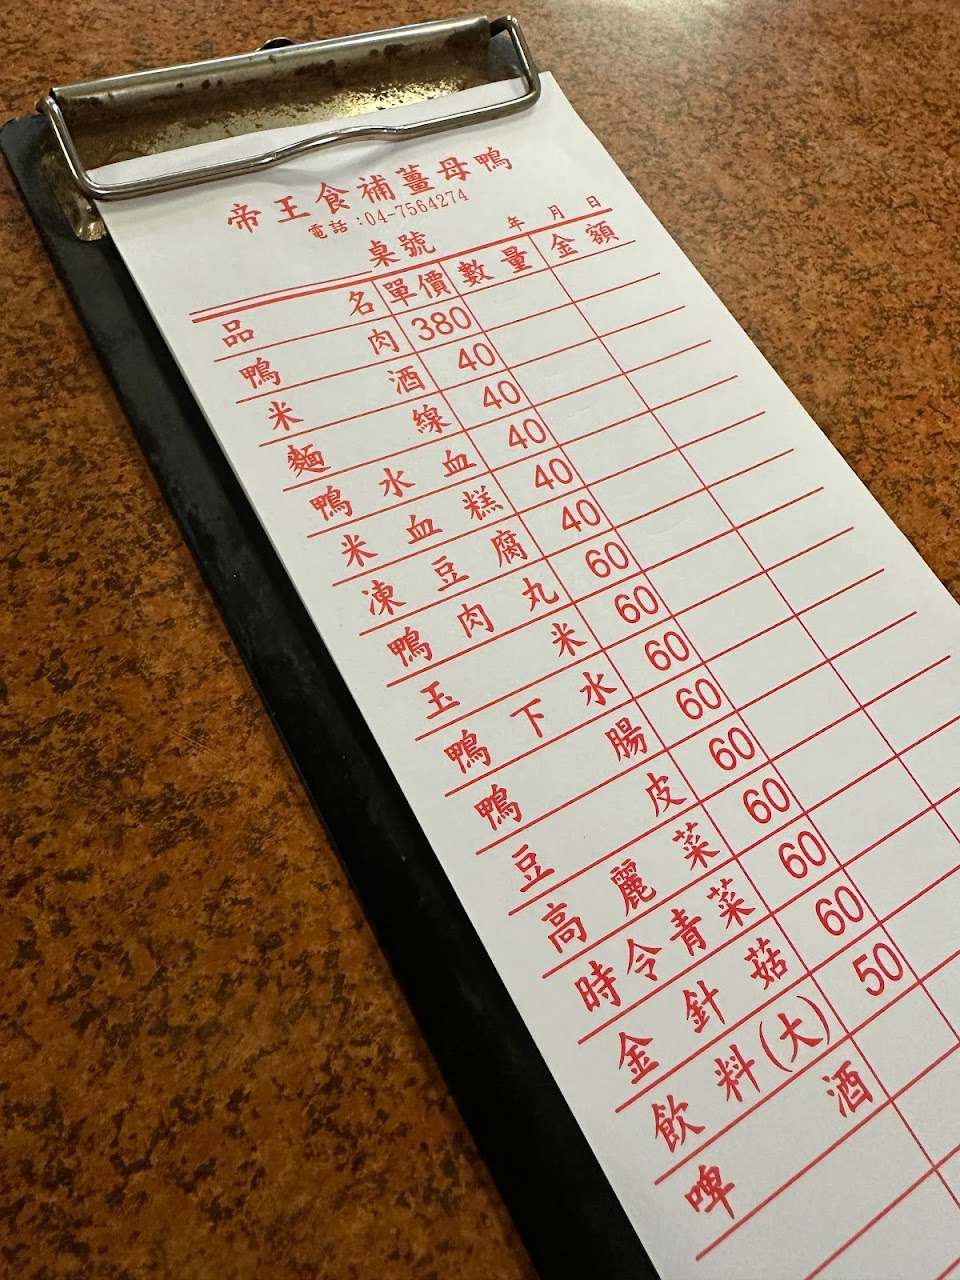 帝王食補薑母鴨
電話:04-7564274
桌號 年 月 日
品名 單價 數量 金額
鴨肉 380
米酒 40
麵線 40
鴨水血 40
米血糕 40
凍豆腐 40
鴨肉丸 60
玉米 60
鴨下水 60
鴨腸 60
豆皮 60
高麗菜 60
時令青菜 60
金針菇 60
飲料(大) 50
啤酒